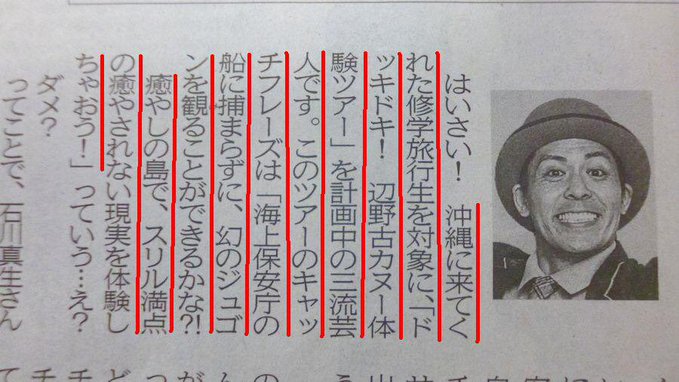 はいさい！　沖縄に来てく
れた修学旅行生を対象に、「ド
ッキドキ！　辺野古カヌー体
験ツアー」を計画中の三流芸
人です。このツアーのキャッ
チフレーズは「海上保安庁の
船に捕まらずに、幻のジュゴ
ンを観ることができるかな?!
癒やしの島で、スリル満点
の癒やされない現実を体験し
ちゃおう！」っていう…え？
ダメ？
ってことで、石川真生さん